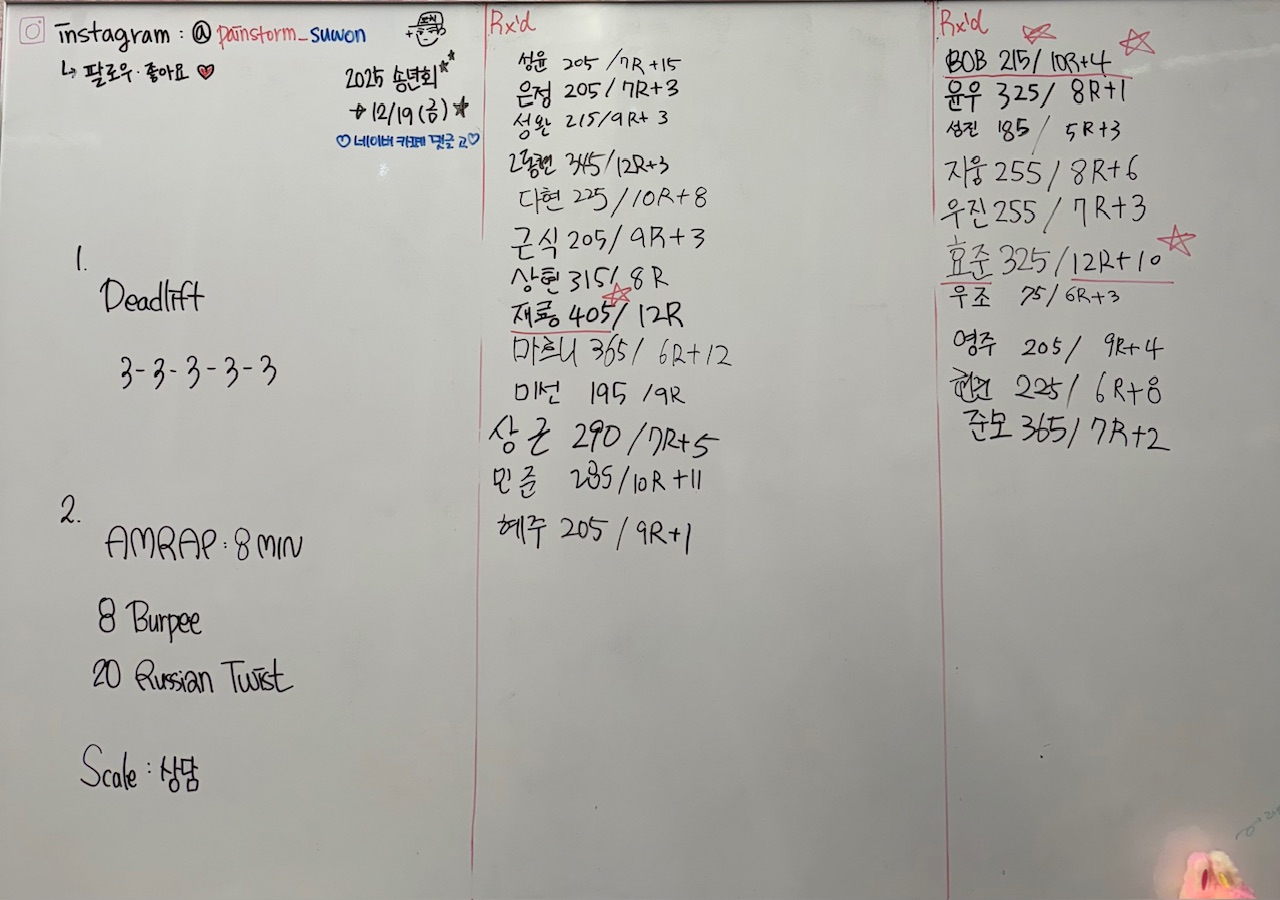 instagram : @ painstorm_suwon
↳ 팔로우·좋아요 ♥
2025 송년회
→ 12/19 (금)
♡네이버 카페 댓글 고♡
1.
Deadlift
3-3-3-3-3
2.
AMRAP : 8 MIN
8 Burpee
20 Russian Twist
Scale : 상담
Rx'd
성윤 205 /7R+15
은정 205/ 7R+3
성완 215/9R+3
345/12R+3
다현 225/10R+8
근식 205/9R+3
상현 315/8R
재룡 405/12R
마르니 365/ 6R+12
미선 195 /9R
상근 290/7R+5
민준 /10R+11
혜주 205 / 9R+1
Rx'd
BOB 215/10R+4
윤우 325/ 8R+1
성진 185/ 5R+3
지웅 255/8R+6
우진 255/ 7R+3
효준 325/12R+10
우조 75/6R+3
영주 205/ 9R+4
225/ 6R+8
준모 365/7R+2